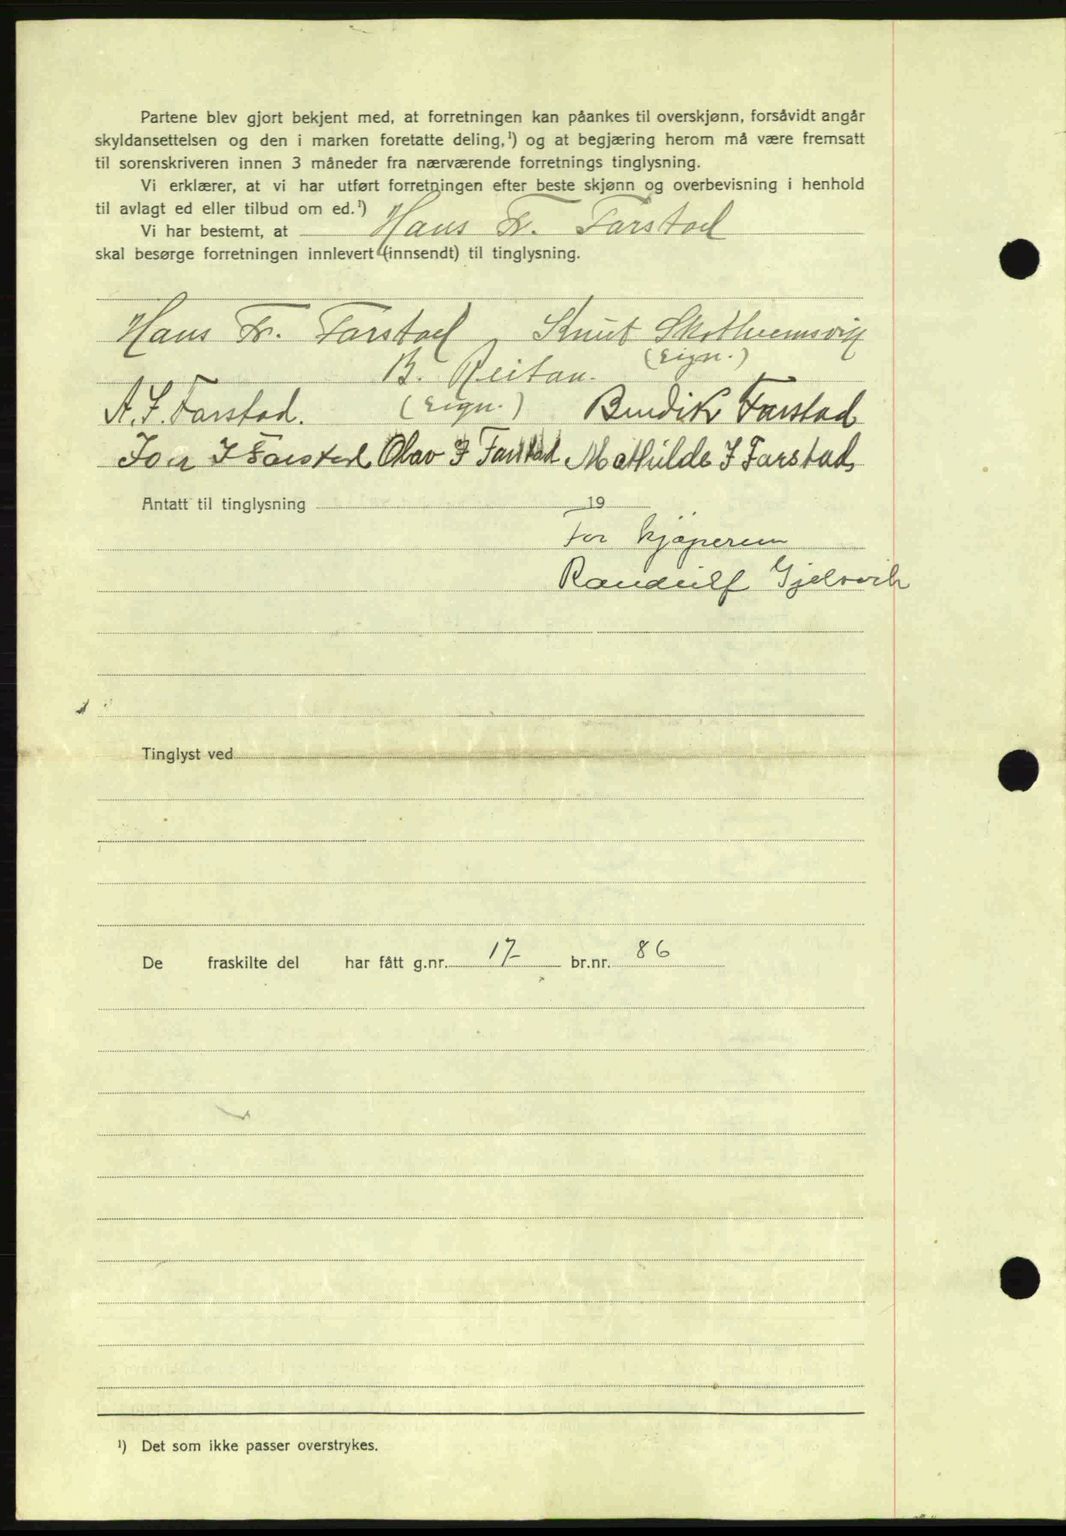 Partene blev gjort bekjent med, at forretningen kan påankes til overskjønn, forsåvidt angår
skyldansettelsen og den i marken foretatte deling,¹) og at begjæring herom må være fremsatt
til sorenskriveren innen 3 måneder fra nærværende forretnings tinglysning.
Vi erklærer, at vi har utført forretningen efter beste skjønn og overbevisning i henhold
til avlagt ed eller tilbud om ed.¹)
Vi har bestemt, at Hans Fr. Farstad
skal besørge forretningen innlevert (innsendt) til tinglysning.
Hans Fr. Farstad Knut
(eign.)
B. Reitan.
A. F. Farstad. (eign.) Bendik Farstad
Joa I Farstad Olav I Farstad Mathilde I Farstad
Antatt til tinglysning 19
For kjøperen
Randulf Gjelsvik
Tinglyst ved
De fraskilte del har fått g.nr. 17 br.nr. 86
¹) Det som ikke passer overstrykes.